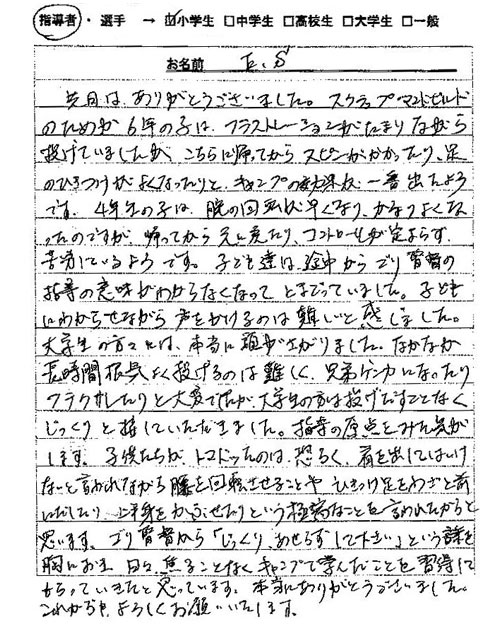 指導者・選手 → ☑小学生 □中学生 □高校生 □大学生 □一般
お名前 E.S
先日は、ありがとうございました。スクラップアンドビルド
のためか6年の子は、フラストレーションがたまりながら
投げていましたが、こちらに帰ってからスピンがかかったり、足
のひきつけがよくなったりと、キャンプの効果が一番出たよう
です。4年生の子は、腕の回転が早くなり、かなりよくな
ったのですが、帰ってから元に戻たり、コントロールが定まらず
苦労しているようです。子ども達は途中からゴリ監督の
指導の意味がわからなくなって とまどっていました。子ども
にわからせながら声をかけるのは難しいと感じました。
大学生の方々には、本当に頭が下がりました。なかなか
長時間根気よく投げるのは難しく、兄弟ゲンカになったり
フテクサレたりと大変でしたが、大学生の方は投げだすことなく
じっくりと接していただきました。指導の原点をみた気が
します。子供たちが、トマドったのは、恐らく、肩を出してはいけ
ないと言われながら腰を回転させることや ひきつけ足をわざと前
にだしたり、上半身をかぶせたりという極端なことを言われたからと
思います。ゴリ監督から「じっくり、あせらずして下さい」という言葉を
胸におき、日々、焦ることなくキャンプで学んだことを習得して
もらっていきたと思っています。本当にありがとうございました。
これからも、よろしくお願いいたします。